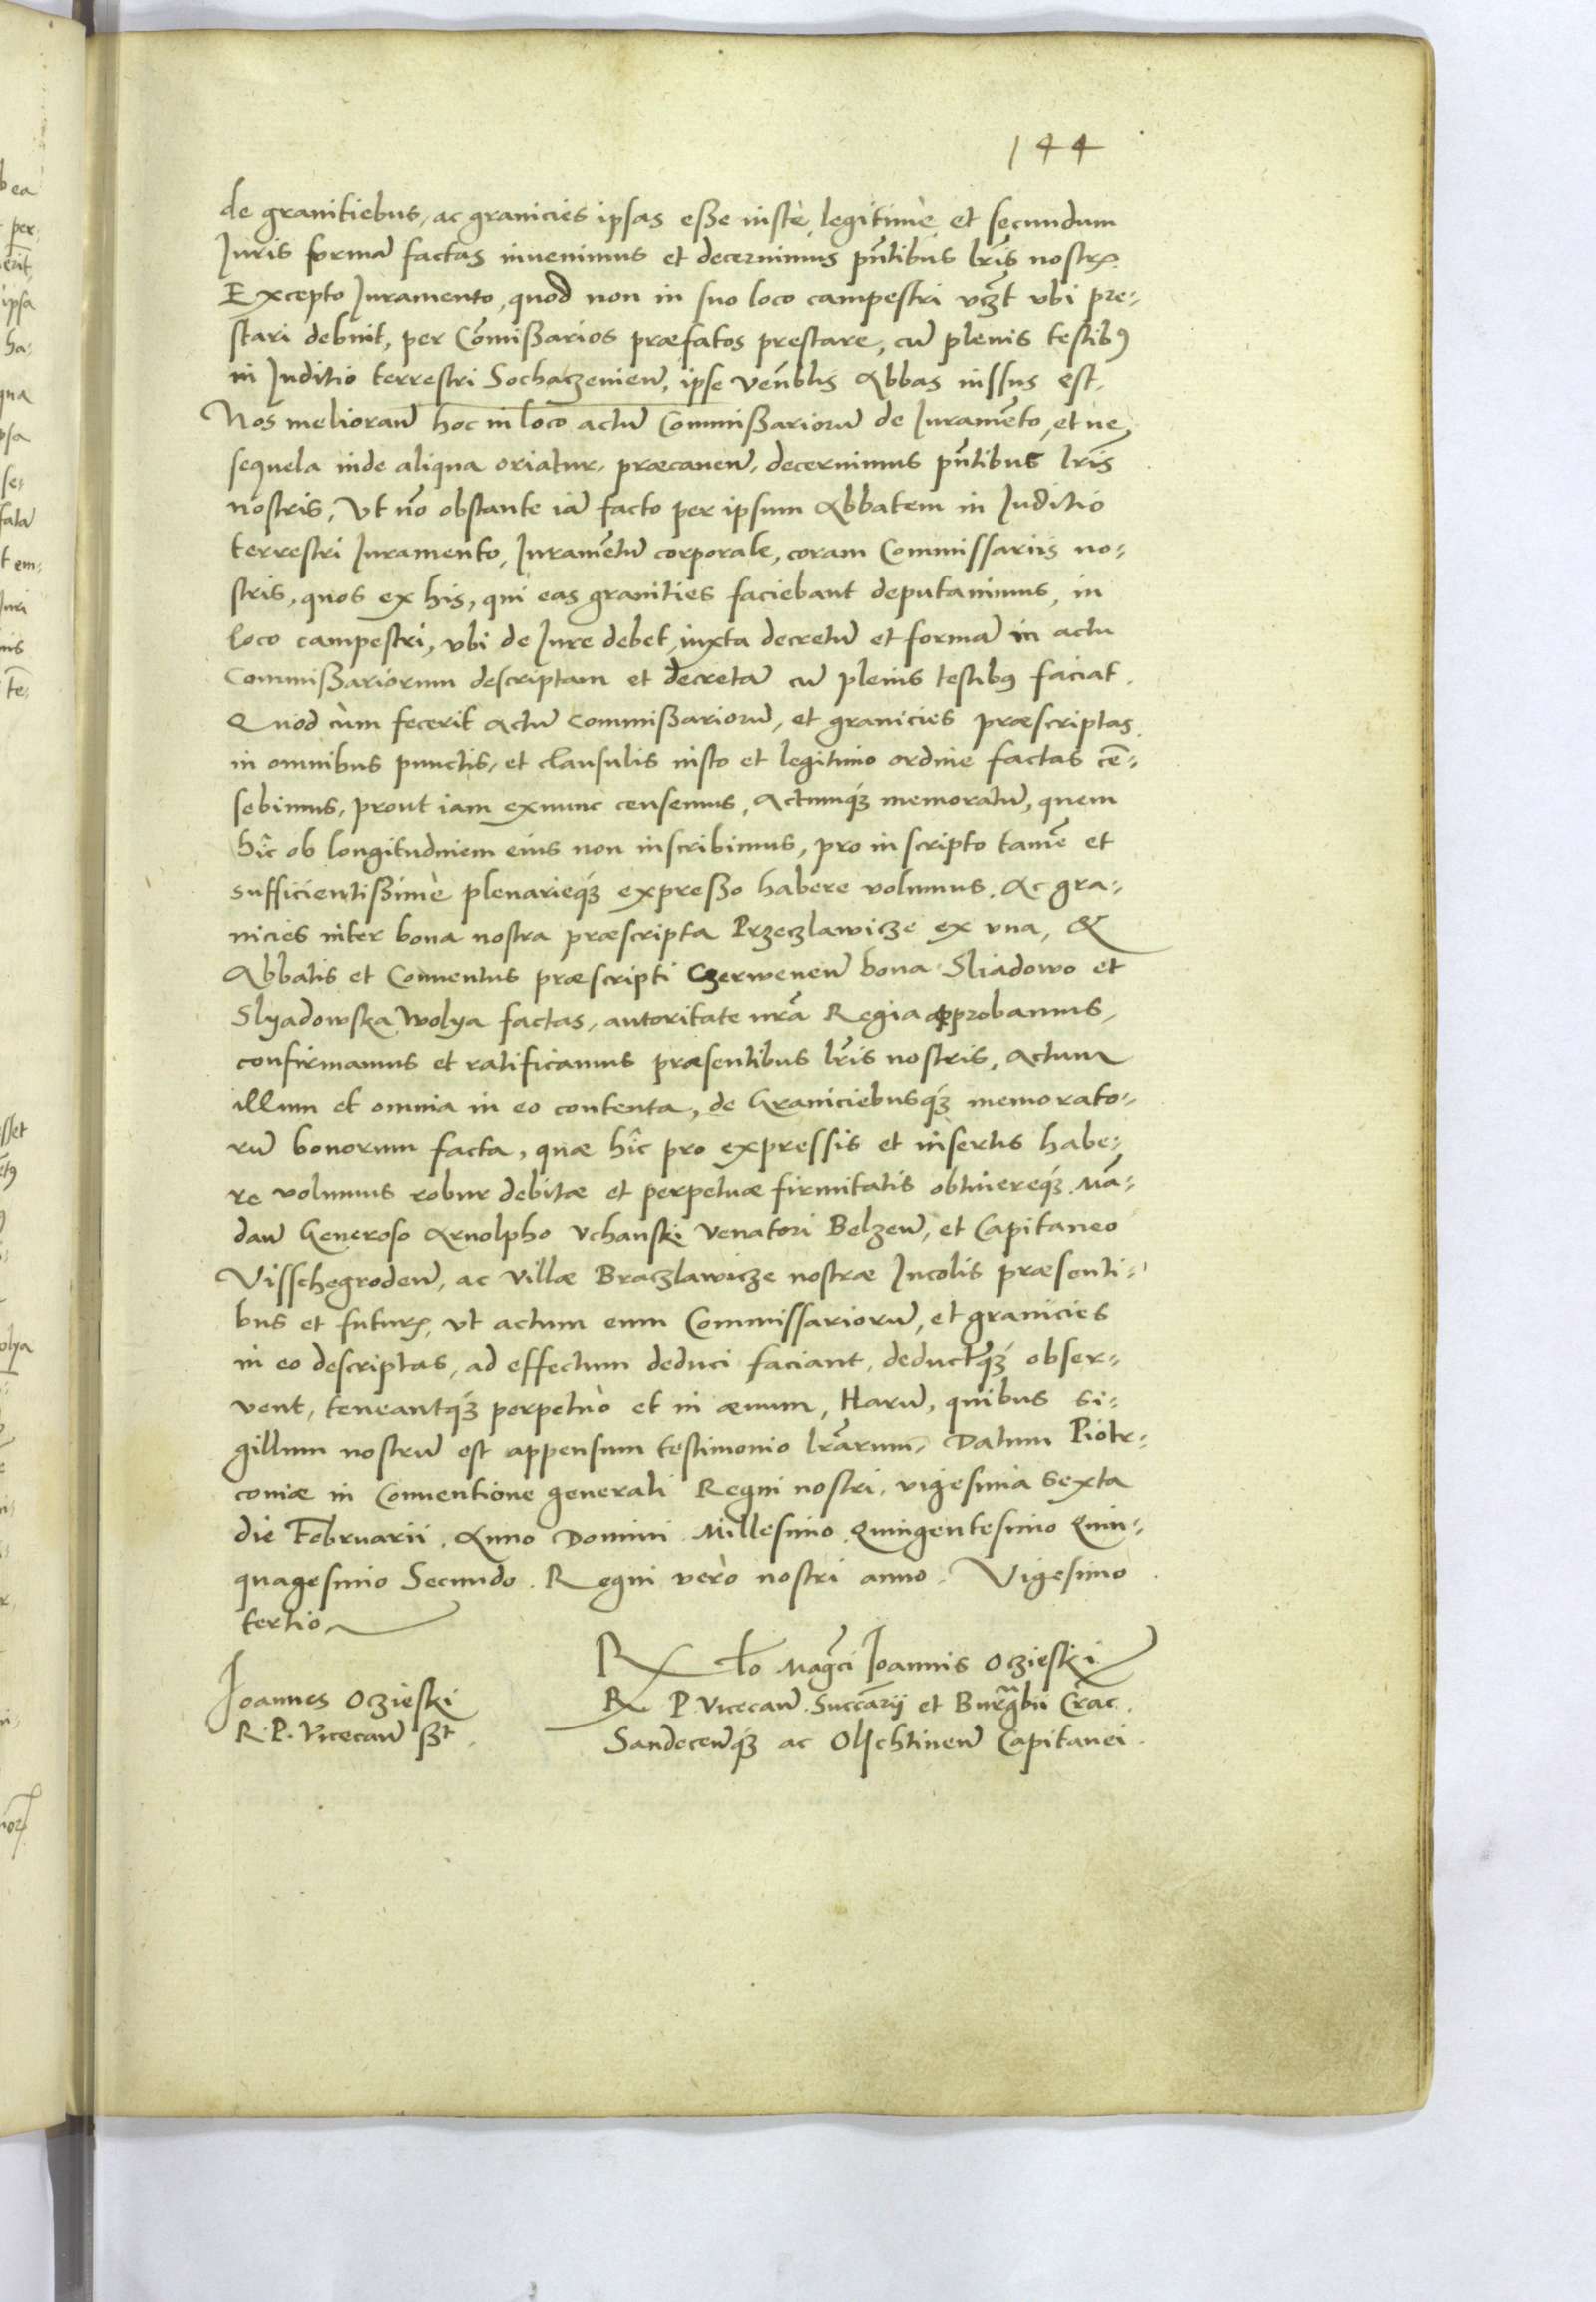 144
de granitiebus, ac granicies ipsas esse iuste, legitimè, et secundum
Iuris formā factas invenimus et decernimus pn̄tibus lr̄is nostrꝭ.
Excepto Iuramento, quod non in suo loco campestri vcꝫt vbi pre-
stari debuit, per Com̄ißarios præfatos prestare, cū plenis testibꝰ
in Iuditio terrestri Sochaczevien̄, ipse ven̄blis Abbas iussus est.
Nos melioran̄ hoc in loco actū Commißariorū de Iuramēto, et ne
sequela inde aliqua oriatur, præcaven̄, decernimus pn̄tibus lr̄is
nostris, Vt nō obstante iā facto per ipsum Abbatem in Iuditio
terrestri Iuramento, Iuramētū corporale, coram Commissariis no-
stris, quos ex his, qui eas granities faciebant deputavimus, in
loco campestri, vbi de Iure debet, iuxta decretū et formā in actu
Commißariorum descriptam et decretā cū plenis testibꝰ faciat.
Quod cùm fecerit Actū Commißariorū, et granicies præscriptas
in omnibus punctis, et clausulis iusto et legitimo ordine factas cē-
sebimus, prout iam exnunc censemus, Actumqꝫ memoratū, quem
hîc ob longitudinem eius non inscribimus, pro inscripto tamē et
sufficientißimè plenarieqꝫ expreßo habere volumus. Ac gra-
nicies inter bona nostra præscripta Przeczlawicze ex vna, &
Abbatis et Conventus præscripti Czerwenen̄ bona Sliadowo et
Slyadowska Wolya factas, autoritate nr̄a Regia approbamus,
confirmamus et ratificamus præsentibus lr̄is nostris, Actum
illum et omnia in eo contenta, de Graniciebusqꝫ memorato-
rū bonorum facta, quæ hîc pro expressis et insertis habe-
re volumus robur debitæ et perpetuæ firmitatis obtinereqꝫ. Mā-
dan̄ Generoso Arnolpho Vchanski Venatori Belzen̄, et Capitaneo
Visschegroden̄, ac Villæ Braczlawicze nostræ Incolis præsenti-
bus et futurꝭ, vt actum eum Commissariorū, et granicies
in eo descriptas, ad effectum deduci faciant, deductqꝫ obser-
vent, teneantqꝫ perpetuò et in ævum, Harū, quibus si-
gillum nostrū est appensum testimonio lr̄arum, Datum Piotr-
coviæ in Conventione generali Regni nostri, vigesima sexta
die Februarii, Anno Domini Millesimo Quingentesimo Quin-
quagesimo Secundo. Regni verò nostri anno Vigesimo
tertio
Ioannes Oczieski
R. P. Vicecan̄ ßt.
Rlō Mag̃ci Ioannis Oczieski
R P. Vicecan̄. Succ̄arij et Burgrabii Crac.
Sandecen̄qꝫ ac Olschtinen̄ Capitanei.